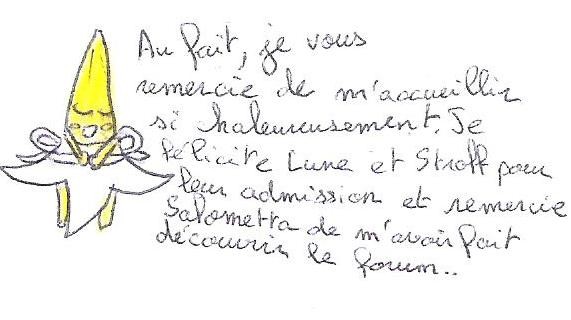 Au fait, je vous
remercie de m'accueillir
si chaleureusement. Je
félicite Lune et Stroff pour
leur admission et remercie
Salometta de m'avoir fait
découvrir le forum..